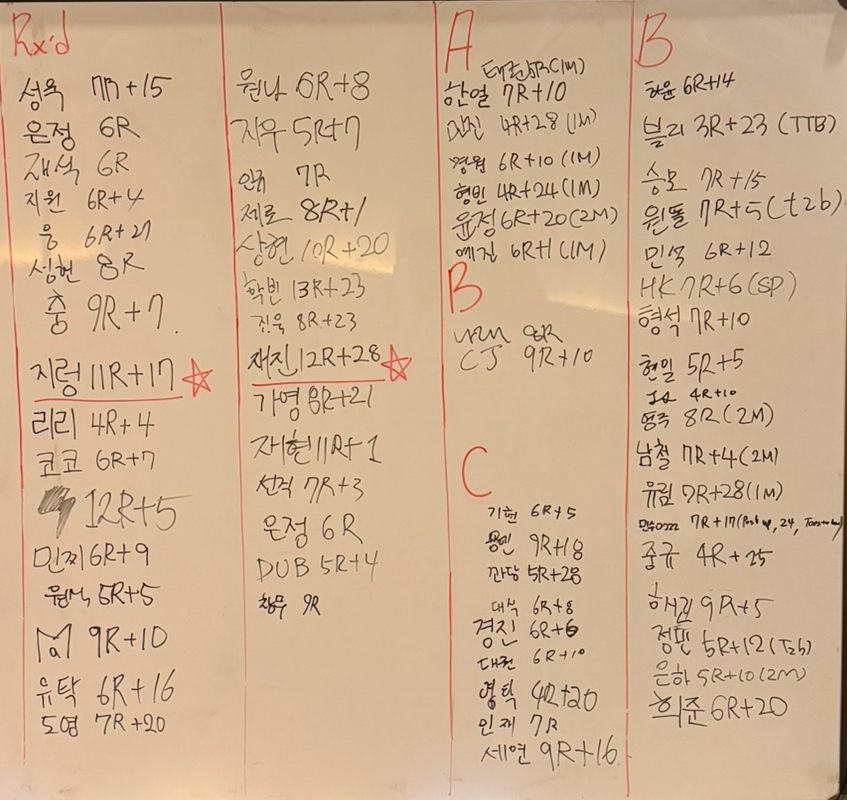 Rx'd
성욱 7R+15
은정 6R
재석 6R
지원 6R+4
웅 6R+27
성현 8R
춤 9R+7
지렁 11R+17
리리 4R+4
코코 6R+7
12R+5
민찌 6R+9
원식 5R+5
9R+10
유탁 6R+16
도영 7R+20
원나 6R+8
지우 5R+7
인규 7R
제로 8R+1
상현 10R+20
학빈 13R+23
진욱 8R+23
재진 12R+28
가영 8R+21
재현 11R+1
선직 7R+3
은정 6R
DUB 5R+4
창무 9R
A
태권 5R(1M)
한열 7R+10
4R+28(1M)
경원 6R+10(1M)
형빈 4R+24(1M)
윤정 6R+20(2M)
예진 6R+1(1M)
B
나래 8R
CJ 9R+10
C
기현 6R+5
용민 9R+18
깐당 5R+28
대식 6R+8
경진 6R+6
대권 6R+10
영탁 4R+20
인재 7R
세연 9R+16
B
하윤 6R+14
블리 3R+23 (TTB)
승모 7R+15
원똘 7R+5(t2b)
민석 6R+12
HK 7R+6(SP)
형석 7R+10
현일 5R+5
4R+10
영주 8R(2M)
남철 7R+4(2M)
유림 7R+28(1M)
7R+17(Push up, 24,
중규 4R+25
해린 9R+5
5R+12(T2b)
은하 5R+10(2M)
희준 6R+20